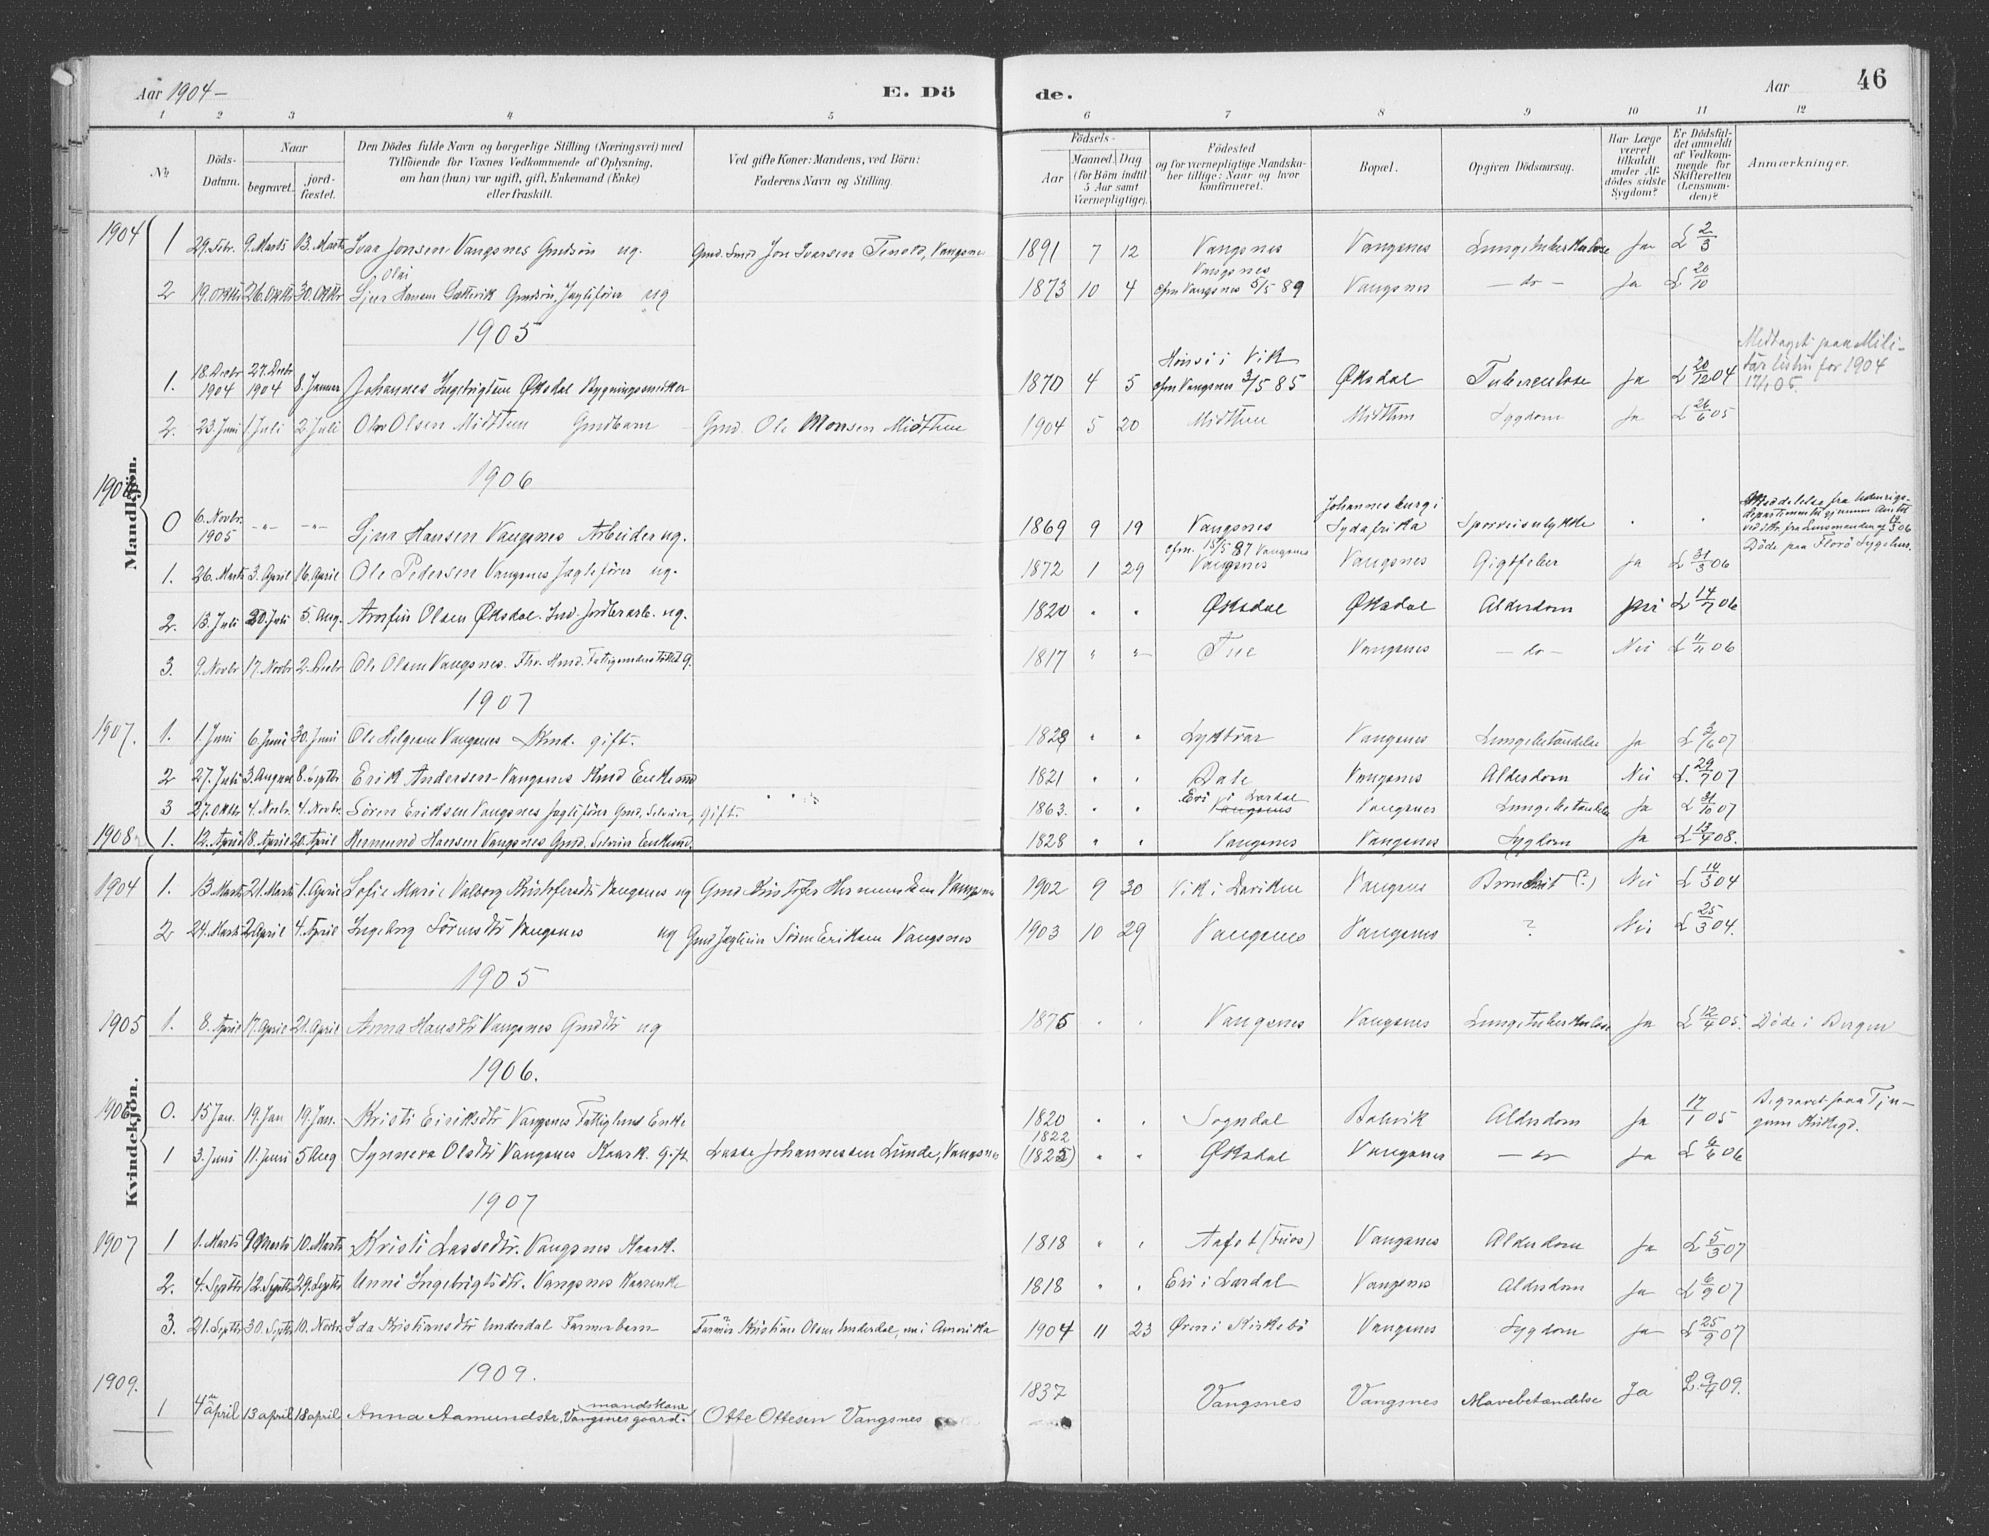 Aar 1904-
E. Dö
de.
Aar
46
1 2 3 4 5 6 7 8 9 10 11 12
Nr.
Döds-Datum.
Naar
begravet.
jord-fæstet.
Den Dödes fulde Navn og borgerlige Stilling (Næringsvei) med
Tilföiende for Voxnes Vedkommende af Oplysning,
om han (hun) var ugift, gift, Enkemand (Enke)
eller fraskilt.
Ved gifte Koner: Mandens, ved Börn:
Faderens Navn og Stilling.
Födsels-
Aar
Maaned. Dag
(for Börn indtil
5 Aar samt
Værnepligtige).
Födested
og for værnepligtige Mandska-
ber tillige: Naar og hvor
konfirmeret.
Bopæl.
Opgiven Dödsaarsag.
Har Læge
været
tilkaldt
under Af-
dödes sidste
Sygdom?
Er Dödsfal-
det anmeldt
af Vedkom-
mende for
Skifteretten
(Lensman-
den)?
Anmærkninger.
Mandkjön.
1904 1 29. Febr. 9. Marts 13. Marts Ivar Jonsen Vangsnes Gmdsön ug. Gmd. Smed Jon Ivarsen Tenold, Vangsnes 1891 7 12 Vangsnes Vangsnes Lungetuberkulose Ja L 2/3
2 19. Oktbr 26. Oktbr 30. Oktbr Sjur Olai Hansen Sætrevik Gmdsön, Jagtfører ug 1873 10 4 Vangsnes cfm Vangsnes 5/5 89 Vangsnes - do - Ja L 20/10
1905
1. 18. Decbr 1904 27. Decbr 1904 8. Januar Johannes Ingebrigtsen Øksdal Bygningssnekker 1870 4 5 Hønsi i Vik cfm Vangsnes 3/5 85 Øksdal Tuberculose Ja L 20/12 04 Medtaget paa Mili-
tærlisten for 1904
17/1 05.
2. 23 Juni 1 Juli 2 Juli Olav Olsen Midthun Gmdbarn Gmd. Ole Monsen Midthun 1904 5 20 Midthun Midthun Sygdom Ja L 26/6 05
1906
1906 0 6. Novbr. 1905 -"- -"- Sjur Hansen Vangsnes Arbeider ug. 1869 9 19 Vangsnes cfm. 15/5 87 Vangsnes Johannesburg i Sydafrika Sporveisulykke Meddelelse fra Udenrigs-
departementet gjennem Amtet
ved skr. fra Lensmanden af 06
1. 26. Marts 3. April 16. April Ole Pedersen Vangsnes Jagtfører ug. 1872 1 29 Vangsnes Vangsnes Gigtfeber Ja L 31/3 06 Døde paa Florö Sygehus.
2. 13. Juli 20. Juli 5. Aug. Arnfin Olsen Øksdal. Ind. Jordbrarb. ug. 1820 " " Øksdal Øksdal Alderdom Nei L 14/7 06
3. 9. Novbr 17. Novbr 2. Decbr. Ole Olsen Vangsnes. Fhv. Hmd. Fattigunderstøttet g. 1817 " " Tue Vangsnes - do - Nei L 11/11 06
1907
1907. 1. 1. Juni 6. Juni 30. Juni Ole Helgesen Vangsnes Kmd. gift. 1828 " " Lyktvær Vangsnes Lungebetændelse Ja L 3/6 07
2 27. Juli 3. August 8. Septbr. Erik Andersen Vangsnes Kmd Enkemd 1821 " " Dale Vangsnes Alderdom Nei L. 29/7 07
3 27. Oktbr 4. Novbr. 4. Novbr. Sören Eriksen Vangsnes Jagtfører Gmd. Selveier, gift. 1863. " " Eri i Lærdal Vangsnes Vangsnes Lungebetændelse Ja L 31/10 07
1908 1. 12. April 18. April 20. April Hermund Hansen Vangsnes Gmd. Selveier Enkemd. 1828 " " Vangsnes Vangsnes Sygdom Ja L 13/4 08.
Kvindekjön.
1904 1. 13. Marts 21. Marts 1. April Sofie Marie Valborg Kristofersdtr Vangsnes ug Gmd Kristofer Hermundsen Vangsnes 1902 9 30 Vik i Lavik Vangsnes (?) Nei L 14/3 04
2 24. Marts 2. April 4. April Ingeborg Sörensdtr Vangsnes ug Gmd Jagteier Sören Eriksen Vangsnes 1903 10 29 Vangsnes Vangsnes ? Nei L 25/3 04.
1905
1905 1. 8. April 17. April 21. April Anna Hansdtr Vangsnes Gmddtr ug 1875 " " Vangsnes Vangsnes Lungetuberkulose Ja L 12/4 05. Døde i Bergen
1906.
1906 0. 15 Jan. 19. Jan 19. Jan. Kristi Eiriksdtr Vangsnes Fattiglem Enke 1820 " " Sogndal Balevik Alderdom Ja 17/1 05 Begravet paa Tju-
gum Kirkegd.
1 3. Juni 11. Juni 5 Aug Synneva Olsdtr Vangsnes Kaark. gift Lasse Johannessen Lunde, Vangsnes 1822 (1825) " " Øksdal Vangsnes - do - Ja L 6/6 06
1907
1907 1 1. Marts 9. Marts 10. Marts Kristi Lassedtr. Vangsnes Kaark. 1818 " " Aafet (Fios) Vangsnes Alderdom Ja L 5/3 07
2. 4. Septbr 12. Septbr 29. Septbr Anni Ingebrigtsdtr. Vangsnes Kaarenke 1818 " " Eri i Lærdal Vangsnes Alderdom Ja L 6/9 07
3. 21. Septbr 30. Septbr 10. Novbr. Ida Kristiansdtr Underdal Farmerbarn Farmer Kristian Olsen Underdal, nu i Amerika 1904 11 23 Øren i Kirkebö Vangsnes Sygdom Ja L 25/9 07
1909.
1909. 1 4de april 13 april 18 april Anna Aamundsdtr, mandskone Vangsnesgaard. Otte Ottesen Vangsnes 1837 Vangsnes Vangsnes Mavebetændelse Ja L. 9/4 09.